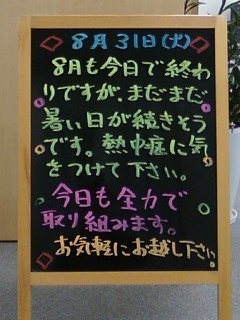 8月31日(火)
8月も今日で終わ
りですが、まだまだ
暑い日が続きそう
です。熱中症に気
をつけて下さい。
今日も全力で
取り組みます。
お気軽にお越し下さい